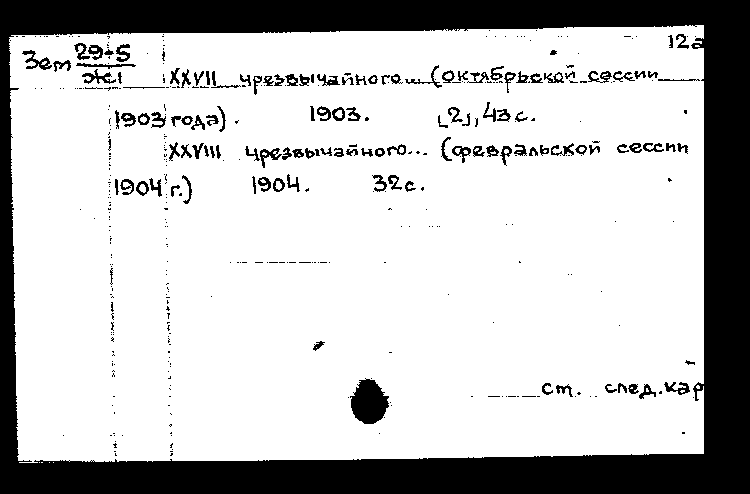 12а
Зет 29-5
Ж1
XXVII чрезвычайного... (октябрьской сессии
1903 года). 1903. [2], 43 с.
XXVIII чрезвычайного... (февральской сессии
1904 г.) 1904. 32 с.
ст. след. кар